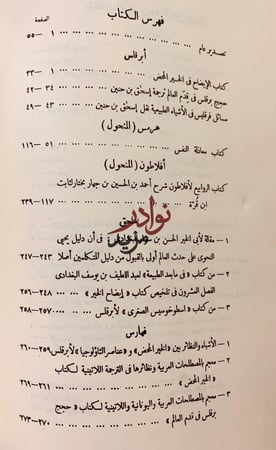 فهرس الكتاب
الصفحة
تصدير عام ... ١ — ٥٥
أبرقلس
كتاب الإيضاح في الخير المحض ... ١ — ٣٣
حجج برقلس في قدم العالم ترجمة إسحق بن حنين ... ٣٤ — ٤٢
مسائل فرقليس في الأشياء الطبيعية نقل إسحق بن حنين ... ٤٣ — ٤٩
هرمس (المنحول)
كتاب معاذلة النفس ... ٥١ — ١١٦
أفلاطون (المنحول)
كتاب الروابيع لأفلاطون شرح أحمد بن الحسين بن جهار بختار لثابت
ابن قرة ... ١١٧ — ٢٣٩
نوادر
مزيد
١ — مقالة لأبي الخير الحسن بن في أن دليل يحيى
النحوى على حدث العالم أولى بالقبول من دليل المتكلمين أصلا ٢٤٣ — ٢٤٧
٢ — من كتاب « في ما بعد الطبيعة » لعبد اللطيف بن يوسف البغدادى
الفصل العشرون في تلخيص كتاب « إيضاح الخير » ... ٢٤٨ — ٢٥٦
٣ — من كتاب « اسطوخوسيس الصغرى » لأبرقلس .. ٢٥٧ — ٢٥٨
فهارس
١ — الأشباه والنظائر بين «الخير المحض» و«عناصر الثاؤلوجيا» لأبرقلس ٢٥٩ — ٢٦٠
٢ — معجم المصطلحات العربية ونظائرها في الترجمة اللاتينية لكتاب
« الخير المحض » ... ٢٦١ — ٢٦٩
٣ — معجم المصطلحات العربية واليونانية واللاتينية لكتاب « حجج
برقلس في قدم العالم » ... ٢٧٠ — ٢٧٣